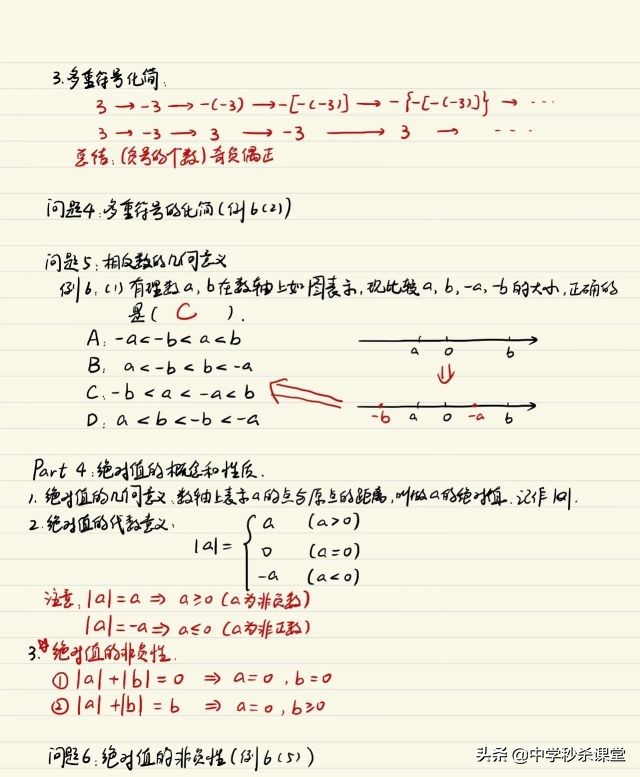 3.多重符号化简:
3 → -3 → -(-3) → -[-(-3)] → -{-[-(-3)]} → ···
3 → -3 → 3 → -3 → 3 → ···
总结:(负号的个数)奇负偶正
问题4:多重符号的化简(例6(2))
问题5:相反数的几何意义
例6:(1)有理数a,b在数轴上如图表示,现比较a,b,-a,-b的大小,正确的
是( C ).
A: -a<-b<a<b
B: a<-b<b<-a
C: -b<a<-a<b
D: a<b<-b<-a
a 0 b
⇓
-b a 0 -a b
Part 4:绝对值的概念和性质.
1.绝对值的几何意义:数轴上表示a的点与原点的距离,叫做a的绝对值.记作|a|.
2.绝对值的代数意义:
|a|= { a (a>0)
0 (a=0)
-a (a<0)
注意:|a|=a ⇒ a≥0 (a为非负数)
|a|=-a ⇒ a≤0 (a为非正数)
3.绝对值的非负性.
① |a|+|b|=0 ⇒ a=0,b=0
② |a|+|b|=b ⇒ a=0,b≥0
问题6:绝对值的非负性(例6(5))
头条@中学秒杀课堂